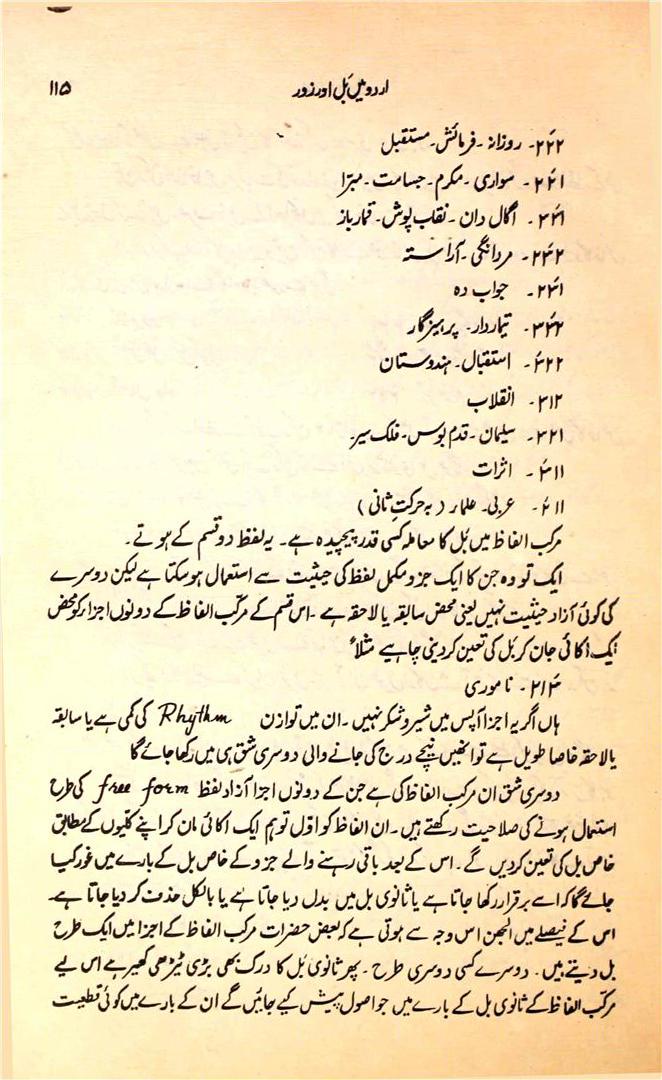 اردو میں بَل اور زور
۱۱۵
۲۲۲۔ روزانہ۔ فرمائش۔ مستقبل
۲۲۱۔ سواری۔ مکرم۔ جسامت۔ مبرّا
۳۲۱۔ اگال دان۔ نقاب پوش۔ قمار باز
۲۳۲۔ مردانگی۔ آراستہ
۲۳۱۔ جواب دہ
۳۳۲۔ تیماردار۔ پرہیزگار
۳۲۲۔ استقبال۔ ہندوستان
۳۱۲۔ انقلاب
۳۲۱۔ سلیمان۔ قدم بوس۔ فلک سیر
۳۱۱۔ اثرات
۲۱۱۔ عربی۔ علماء (بہ حرکتِ ثانی)
مرکب الفاظ میں بَل کا معاملہ کسی قدر پیچیدہ ہے۔ یہ لفظ دو قسم کے ہوتے۔
ایک تو وہ جن کا ایک جزو مکمل لفظ کی حیثیت سے استعمال ہوسکتا ہے لیکن دوسرے
کی کوئی آزاد حیثیت نہیں یعنی محض سابقہ یا لاحقہ ہے۔ اس قسم کے مرکّب الفاظ کے دونوں اجزار کو محض
ایک اکائی جان کر بَل کی تعین کردینی چاہیے مثلاً
۲۱۳۔ ناموری
ہاں اگر یہ اجزا آپس میں شیر و شکر نہیں۔ ان میں توازن Rhythm کی کمی ہے یا سابقہ
یا لاحقہ خاصا طویل ہے تو انھیں نیچے درج کی جانے والی دوسری شق ہی میں رکھا جائے گا
دوسری شق ان مرکب الفاظ کی ہے جن کے دونوں اجزا آزاد لفظ free form کی طرح
استعمال ہونے کی صلاحیت رکھتے ہیں۔ ان الفاظ کو اوّل تو ہم ایک اکائی مان کر اپنے کلیوں کے مطابق
خاص بل کی تعین کردیں گے۔ اس کے بعد باقی رہنے والے جزو کے خاص بل کے بارے میں غور کیا
جائے گا کہ اسے برقرار رکھا جاتا ہے یا ثانوی بل میں بدل دیا جاتا ہے یا بالکل حذف کر دیا جاتا ہے۔
اس کے فیصلے میں الجھن اس وجہ سے ہوتی ہے کہ بعض حضرات مرکب الفاظ کے اجزا میں ایک طرح
بل دیتے ہیں۔ دوسرے کسی دوسری طرح۔ پھر ثانوی بَل کا درک بھی بڑی ٹیڑھی کھیر ہے اس لیے
مرکّب الفاظ کے ثانوی بل کے بارے میں جو اصول پیش کیے جائیں گے ان کے بارے میں کوئی قطعیت